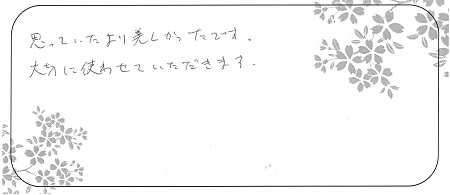 思っていたより美しかったです。
大切に使わせていただきます.